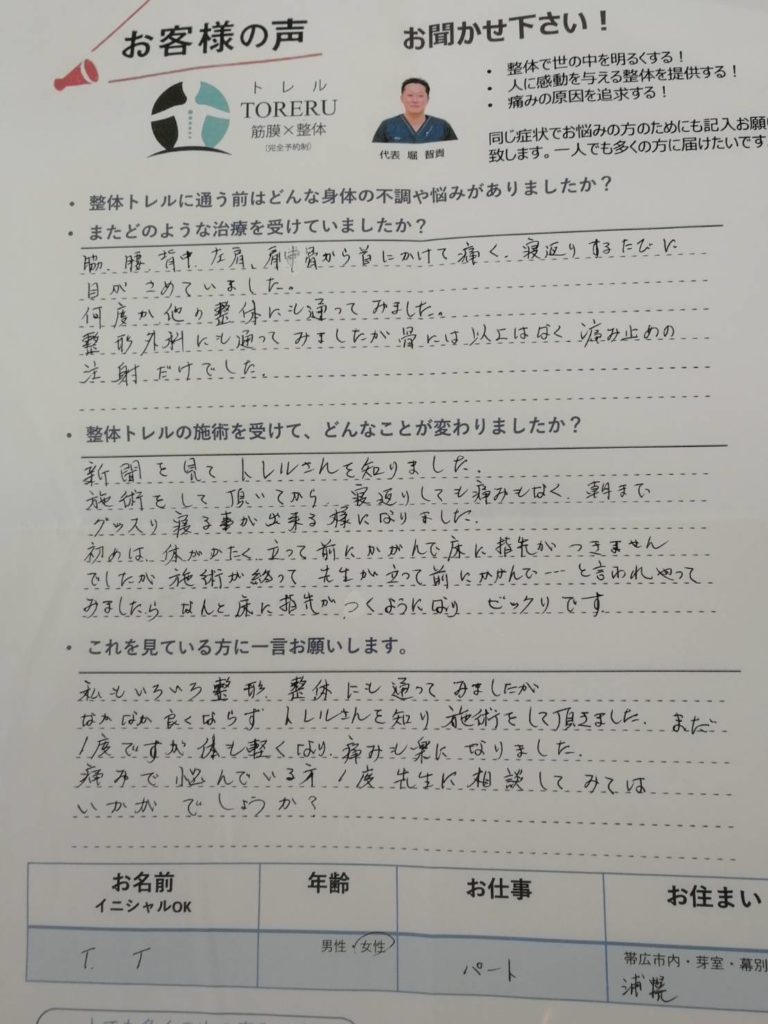 お客様の声
お聞かせ下さい！
トレル
TORERU
筋膜×整体
(完全予約制)
代表 堀 智貴
・ 整体で世の中を明るくする！
・ 人に感動を与える整体を提供する！
・ 痛みの原因を追求する！
同じ症状でお悩みの方のためにも記入お願い
致します。一人でも多くの方に届けたいです
・ 整体トレルに通う前はどんな身体の不調や悩みがありましたか？
・ またどのような治療を受けていましたか？
脇、腰、背中、左肩、肩甲骨から首にかけて痛く、寝返りするたびに
目がさめていました。
何度か他の整体にも通ってみました。
整形外科にも通ってみましたが骨には以上はなく 痛み止めの
注射だけでした。
・ 整体トレルの施術を受けて、どんなことが変わりましたか？
新聞を見て トレルさんを知りました。
施術をして頂いてから 寝返りしても痛みもなく、朝まで
グッスリ寝る事が出来る様になりました。
初めは、体がかたく立って前にかがんで床に指先がつきません
でしたが 施術が終って 先生が立って前にかがんで…と言われやって
みましたら なんと床に指先がつくようになり ビックリです
・ これを見ている方に一言お願いします。
私もいろいろ整形、整体にも通ってみましたが
なかなか良くならず トレルさんを知り 施術をして頂きました。まだ
1度ですが体も軽くなり、痛みも楽になりました。
痛みで悩んでいる方 1度先生に相談してみては
いかがでしょうか？
お名前 年齢 お仕事 お住まい
イニシャルOK
T. T 男性・女性 パート 帯広市内・芽室・幕別
浦幌